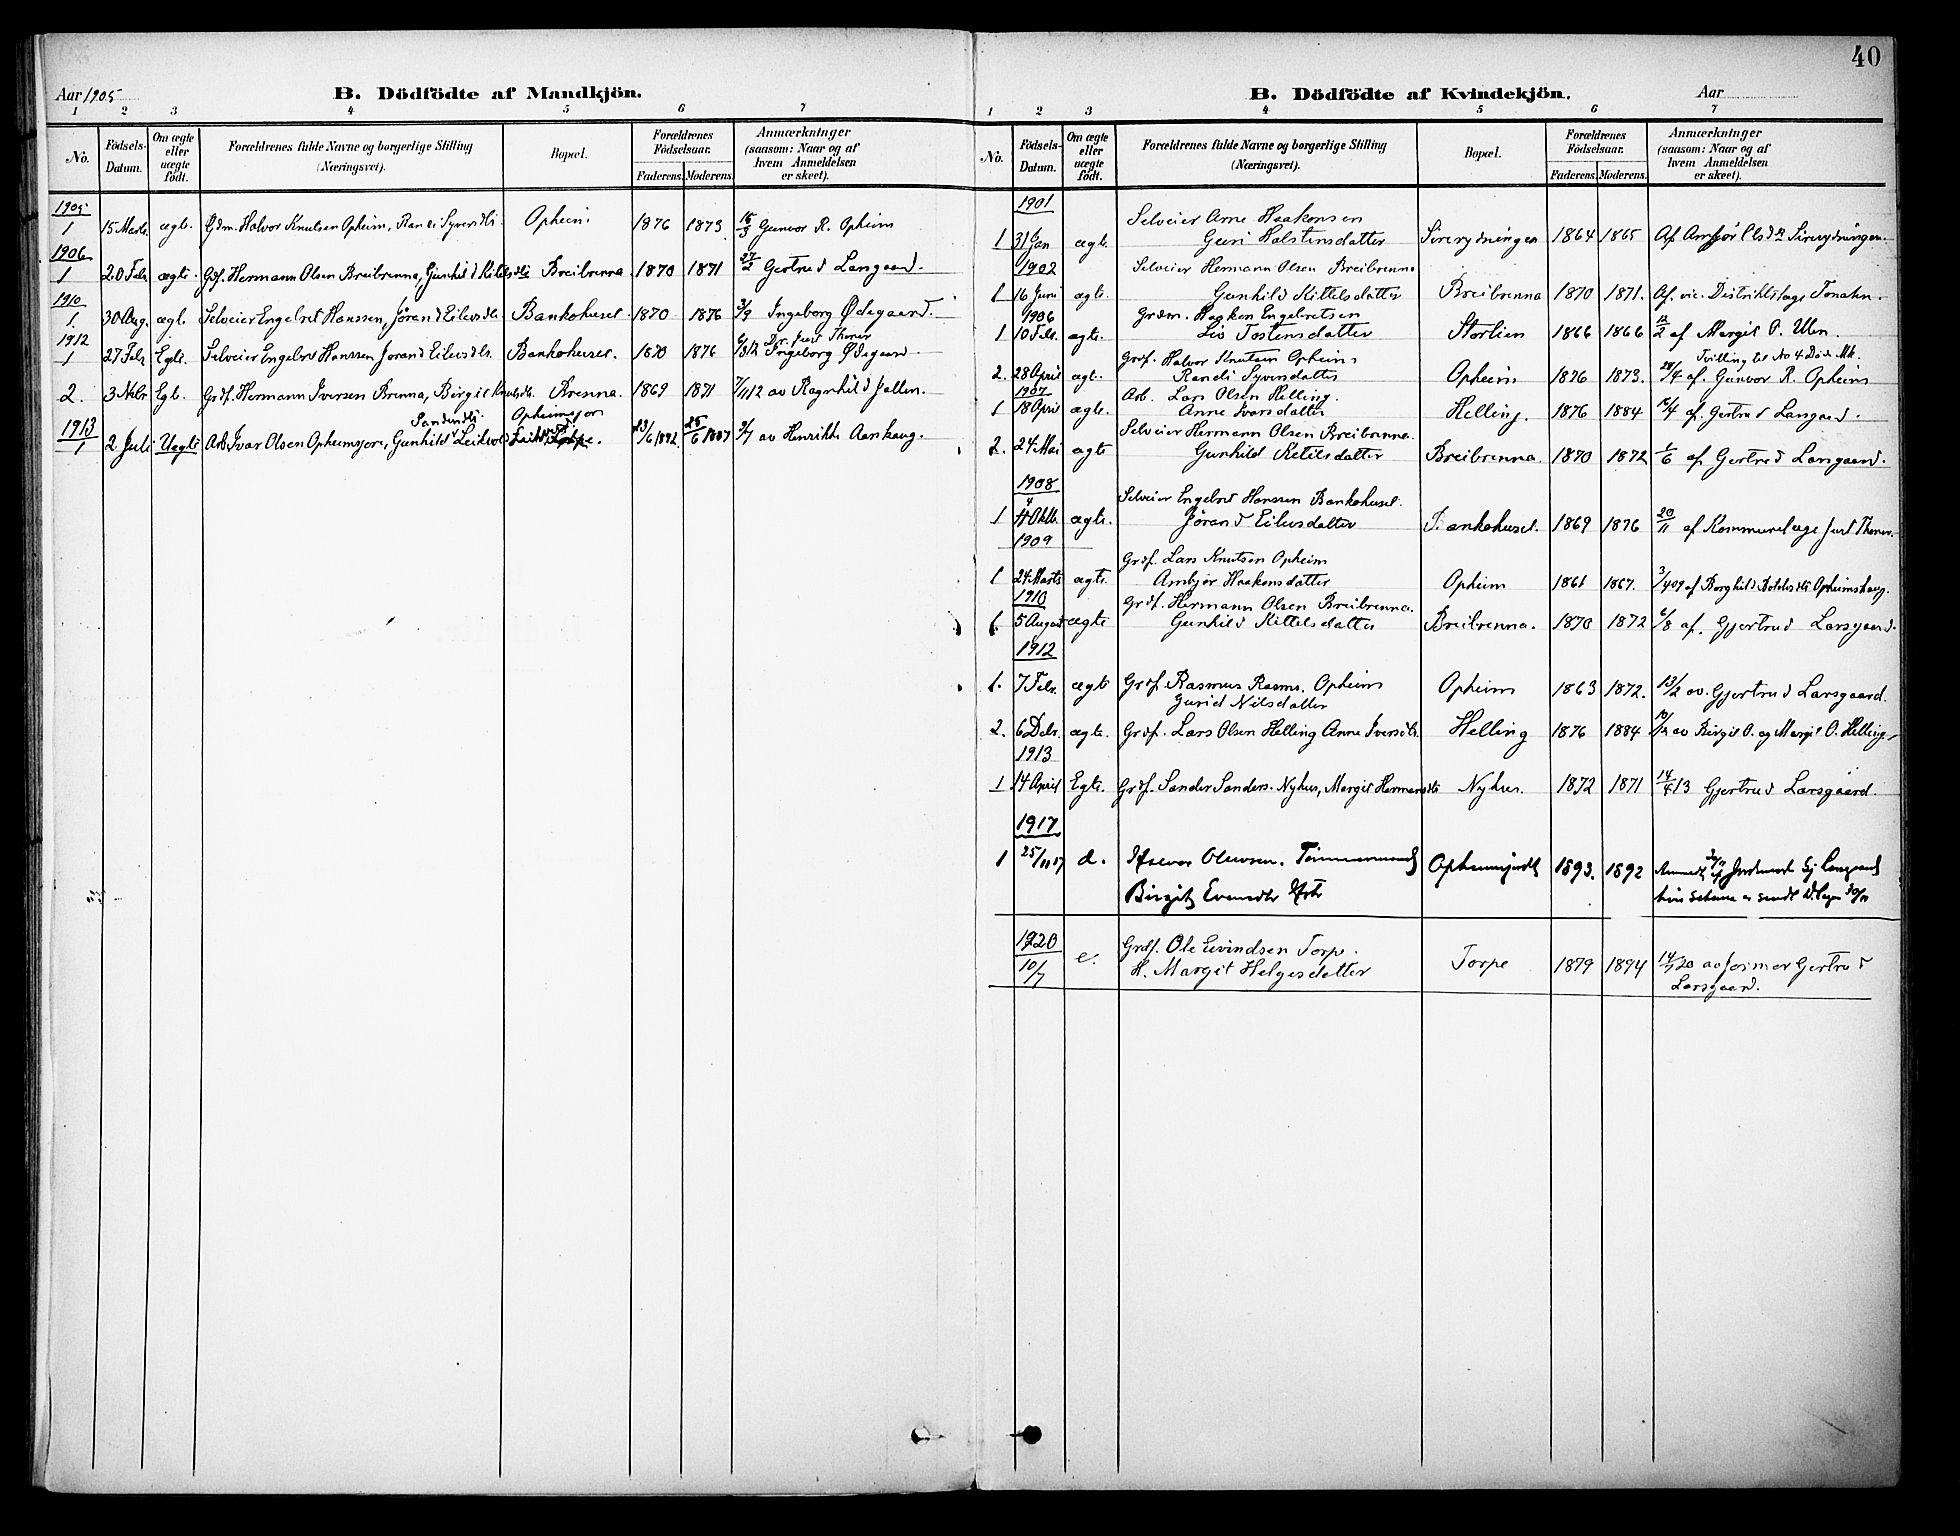 Aar 1905
B. Dödfödte af Mandkjön.
1 2 3 4 5 6 7
No. Födsels-Datum. Om ægte eller uægte født. Forældrenes fulde Navne og borgerlige Stilling (Næringsvei). Bopæl. Forældrenes Födselsaar. Faderens. Moderens. Anmærkninger (saasom: Naar og af hvem Anmeldelsen er skeet).
1905
1 15 Marts. ægte. Gdm. Halvor Knutsen Opheim, Randi Syversdtr. Opheim 1876 1873 15/3 Gunvor R. Opheim
1906
1 20 Febr. ægte. Gdf. Hermann Olsen Breibrenna, Gunhild Kittelsdtr Breibrenna 1870 1871 27/2 Gertrud Larsgaard.
1910
1. 30 Aug. ægt. Selveier Engebret Hanssen, Jørand Eilevsdtr. Bankohuset 1870 1876 3/9 Ingeborg Ødegaard.
1912
1 27 Febr Egte. Selveier Engebret Hanssen Jorand Eilevsdtr. Bankohuset. 1870 1876 Dr. Just Thoner Ingeborg Ødegaard.
2. 3 Nvbr Egt. Grdf. Hermann Iversen Brenna, Birgit Knutsdtr. Brenna. 1869 1871 7/11 12 av Ragnhild Jallen.
1913
Sandersdtr. Opheimsjor
1 2 Juli Uegte Arb. Ivar Olsen Opheimsjore, Gunhild 23/6 1892 25/6 1887 3/7 av Henrikke Aanhaug.
40
B. Dödfödte af Kvindekjön.
Aar
1 2 3 4 5 6 7
No. Födsels-Datum. Om ægte eller uægte født. Forældrenes fulde Navne og borgerlige Stilling (Næringsvei). Bopæl. Forældrenes Födselsaar. Faderens. Moderens. Anmærkninger (saasom: Naar og af hvem Anmeldelsen er skeet).
1901
Selveier Arne Haakonsen
1 31 Jan ægte. Guri Halstensdatter Sirerydningen 1864 1865 Af Ambjør Sirerydningen.
1902
Selveier Hermann Olsen Breibrenna
1 16 Juni ægte. Gunhild Kittelsdatter Breibrenna 1870 1871. Af. vic. Distriktslæge Tonahn.
1906
Grdm. Haakon Engebretsen
1 10 Febr. ægte. Liv Tostensdatter Storlien 1866 1866 12/2 af Margit O. Ulen.
Grdf. Halvor Knutsen Opheim Tvilling til No 4 Døde Mk.
2. 28 April ægt. Randi Syversdatter Opheim 1876 1873. 28/4 af. Gunvor R. Opheim
1907
Arb. Lars Olsen Helling.
1 18 April ægte. Anne Ivarsdatter Helling. 1876 1884 af. Gertrud Larsgaard.
Selveier Hermann Olsen Breibrenna.
2. 24 Mai ægte Gunhild Ketilsdatter Breibrenna. 1870 1872 1/6 af Gertrud Larsgaard.
1908
Selveier Engebret Hanssen Bankohuset.
1 4 Oktb. ægte. Jørand Eilevsdatter Bankohuset. 1869 1876 20/11 af Kommunelæge Just Thoner.
1909
Grdf. Lars Knutsen Opheim
1 24 Marts ægte. Ambjør Haakonsdatter Opheim 1861 1867. 3/4 09 af Borghild Opheimshaug.
1910
Grdf. Hermann Olsen Breibrenna.
1. 5 August ægte Gunhild Kittelsdatter Breibrenna. 1870 1872 6/8 af. Gjertrud Larsgaard.
1912
1. 7 Febr. ægte Grdf. Rasmus Rasms. Opheim Opheim 1863 1872. 13/2 av. Gjertrud Larsgaard.
Gurid Nilsdatter
2. 6 Dcbr. ægte. Grdf. Lars Olsen Helling Anne Iversdtr. Helling 1876 1884 10/12 av Birgit O. og Margit O. Helling.
1913
1 14 April Egte. Grdf. Sander Sanders. Nyhus, Margit Hermansdtr Nyhus. 1872 1871 14/4 13 Gjertrud Larsgaard.
1917
1 25/11 17 Olewsen. 1893. 1892
Birgit Evensdtr
1920
10/7 e. Grdf. Ole Eivindsen Torpe. Torpe 1879 1894 14/7 20 av jormor Gertrud
H. Margit Helgesdatter Larsgaard.